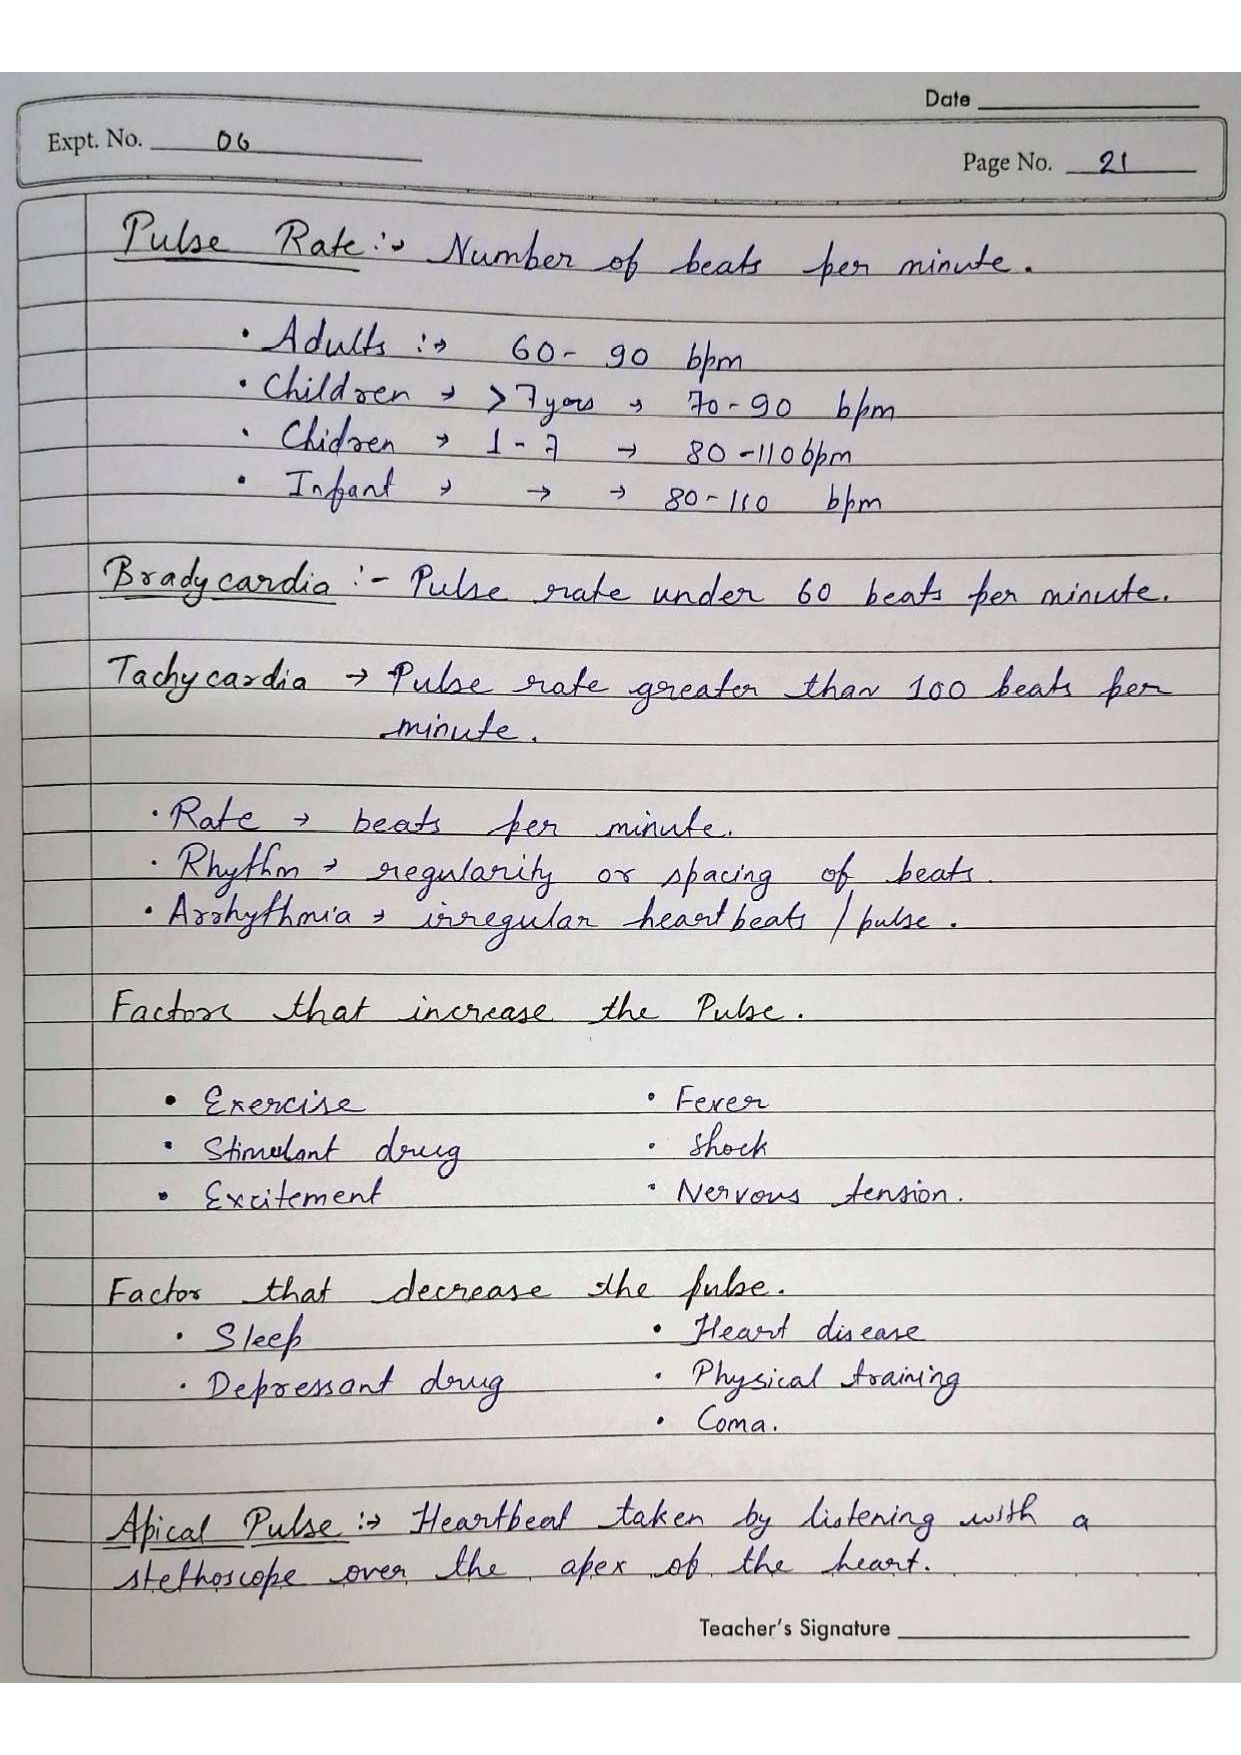 Date
Expt. No. 06
Page No. 21
Pulse Rate :→ Number of beats per minute.
• Adults :→ 60- 90 bpm
• Children → >7 yers → 70-90 bpm
• Chidren → 1-7 → 80-110 bpm
• Infant → → → 80-110 bpm
Bradycardia :- Pulse rate under 60 beats per minute.
Tachycardia → Pulse rate greater than 100 beats per
minute.
• Rate → beats per minute.
• Rhythm → regularity or spacing of beats.
• Arrhythmia → irregular heartbeats / pulse.
Factors that increase the Pulse.
• Exercise • Fever
• Stimulant drug • Shock
• Excitement • Nervous tension.
Factor that decrease the pulse.
• Sleep • Heart disease
• Depressant drug • Physical training
• Coma.
Apical Pulse :→ Heartbeat taken by listening with a
stethoscope over the apex of the heart.
Teacher's Signature